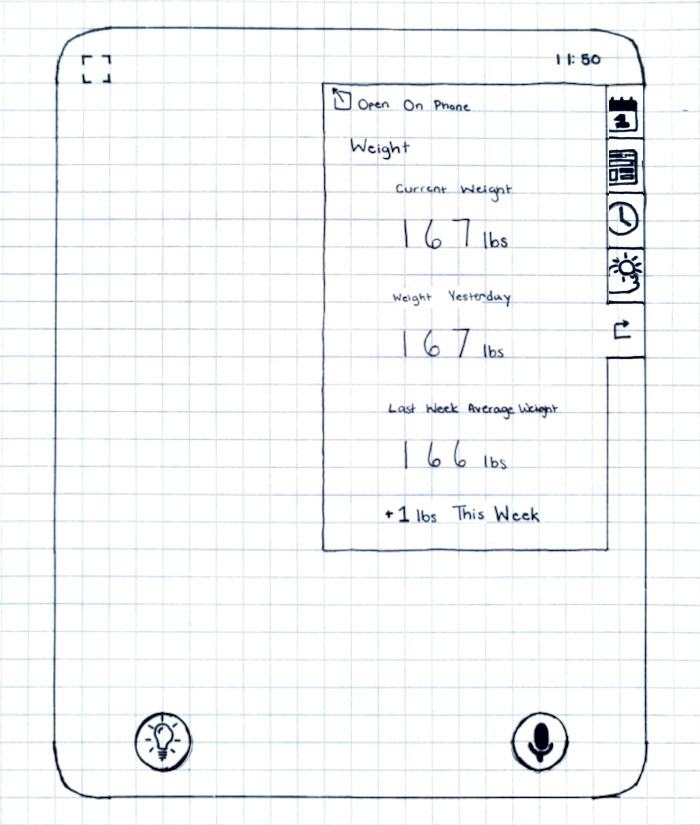 11:50
1
Open On Phone
Weight
Current Weight
167 lbs
Weight Yesterday
167 lbs
Last Week Average Weight
166 lbs
+1 lbs This Week